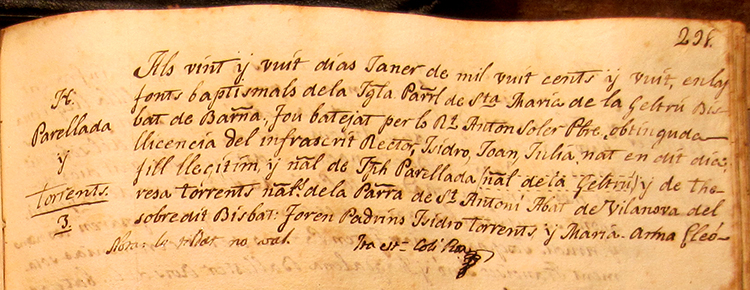 298.
H.
Parellada
y
torrents.
3.
Als vint y vuit dias Janer de mil vuit cents y vuit, en las
fonts baptismals de la Igla Parrl de Sta Maria de la Geltru Bis-
bat de Barna, fou batejat per lo Rt Anton Soler Pbre, obtinguda
llicencia del infrascrit Rector, Isidro, Joan, Julia, nat en dit dia,
fill llegitim, y nal de Jph Parellada (nal de la Geltru) y de the-
resa torrents nal. de la Parra de St Antoni Abat de Vilanova del
sobredit Bisbat: foren Padrins Isidro torrents y Maria-Anna Eleó-
no val. Ita est